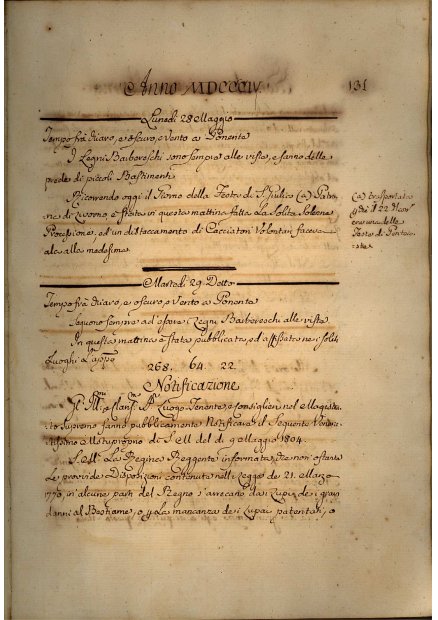 Anno MDCCCIV.
131
Lunedi 28 Maggio
Tempo frà chiaro, e oscuro, e Vento a Ponente
I Legni Barbareschi sono sempre alle viste, e fanno delle
prede di piccoli Bastimenti.
Ricorrendo oggi il Giorno della Festa di S. Giulia (a) Patro
ne di Livorno è stata in questa mattina fatta la Solita Solenne
Processione, ed un distaccamento di Cacciatori Volontari faceva
ala alla medesima.
(a) trasportata
22
della
Festa di Penteco
ste
Martedi 29 Detto
Tempo frà chiaro, e oscuro, e Vento a Ponente
Seguono sempre ad essere i Legni Barbareschi alle viste
In questa mattina è stata pubblicata, ed affissa ne i soliti
Luoghi L'appa
268. 64. 22.
Notificazione
Luogo Tenente, e Consiglieri nel Magistra
to Supremo fanno pubblicamente Notificare il Seguente Venera
tissimo Motuproprio di S. M. del dì 9 Maggio 1804.
S. M. La Regina Reggente informata, che non ostante
Le provide Disposizioni contenute nella Legge de 21. Marzo
1770, in alcune parti del Regno s'arrecano da i Lupi de i gravi
danni al Bestiame, o p la mancanza de i Lupai patentati, o